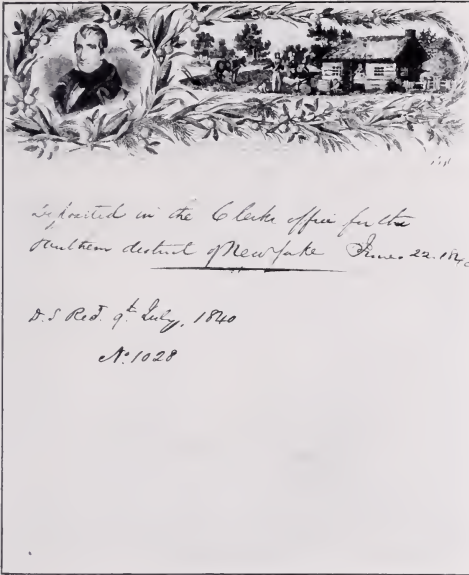 Deposited in the Clerks office for the
Southern district of New York June 22. 1840
D. S Recd. 9th July, 1840
No. 1028